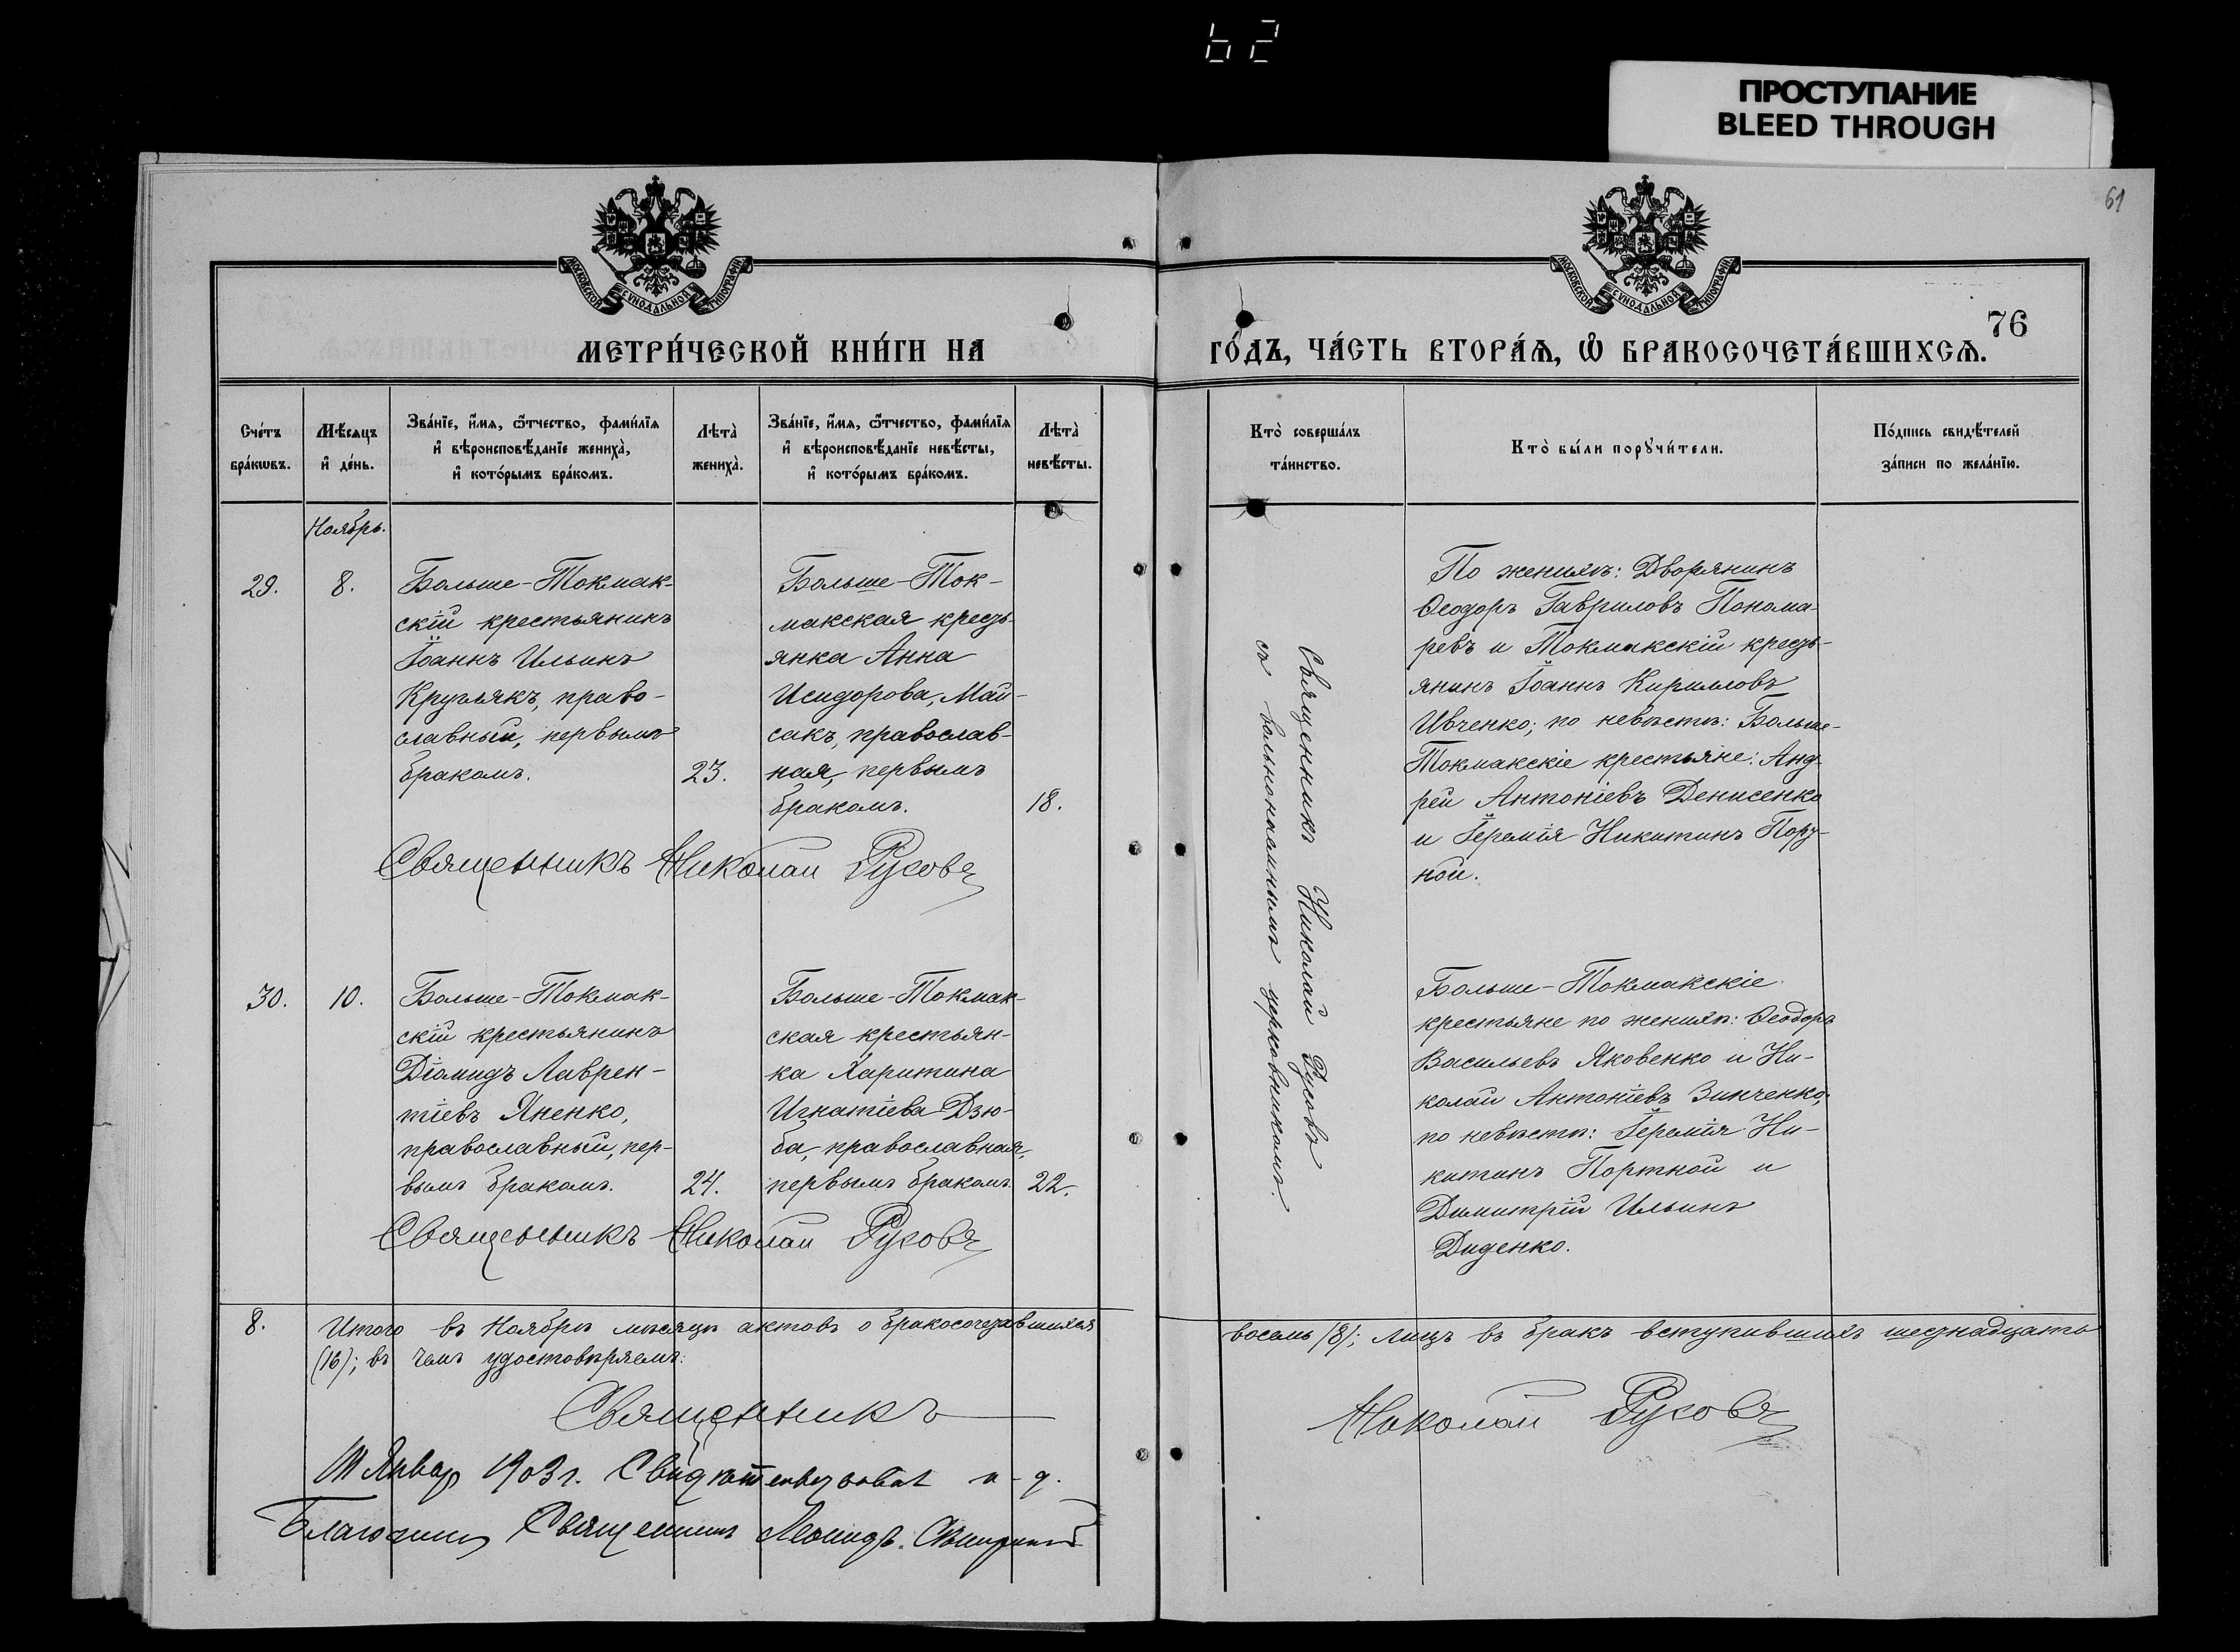 62
ПРОСТУПАНИЕ
BLEED THROUGH
61
МОСКОВСКОЙ СУНОДАЛЬНОЙ ТИПОГРАФІИ
МОСКОВСКОЙ СУНОДАЛЬНОЙ ТИПОГРАФІИ
76
МЕТРИ́ЧЕСКОЙ КНИ́ГИ НА
ГО́ДЪ, ЧА́СТЬ ВТОРА́Ѧ, Ѽ БРАКОСОЧЕТА́ВШИХСѦ.
Сче́тъ
бра́кѡвъ.
Мѣ́сѧцъ
и҆ де́нь.
Зва́нїе, и҆́мѧ, ѻ҆́тчество, фами́лїѧ
и҆ вѣроисповѣ́данїе жениха̀,
и҆ кото́рымъ бра́комъ.
Лѣта̀
жениха̀.
Зва́нїе, и҆́мѧ, ѻ҆́тчество, фами́лїѧ
и҆ вѣроисповѣ́данїе невѣ́сты,
и҆ кото́рымъ бра́комъ.
Лѣта̀
невѣ́сты.
Кто̀ соверша́лъ
та́инство.
Кто̀ бы́ли порꙋчи́тели.
По́дпись свидѣ́телей
за́писи по жела́нїю.
Ноябрь.
29.
8.
Больше-Токмак-
скій крестьянинъ
Іоаннъ Ильинъ
Круглякъ, право-
славный, первымъ
бракомъ.
23.
Больше-Ток-
макская кресть-
янка Анна
Исидорова, Май-
сакъ, православ-
ная, первымъ
бракомъ.
18.
Священникъ Николай Русовъ
По женихѣ: Дворянинъ
Ѳеодоръ Гавриловъ Понома-
ревъ и Токмакскій кресть-
янинъ Іоаннъ Кирилловъ
Ивченко; по невѣстѣ: Больше-
Токмакскіе крестьяне: Анд-
рей Антоніевъ Денисенко
и Іеремія Никитинъ Порт-
ной.
Священникъ Николай Русовъ
съ вольнонаемнымъ церковникомъ.
30.
10.
Больше-Токмак-
скій крестьянинъ
Діомидъ Лаврен-
тіевъ Яненко,
православный, пер-
вымъ бракомъ.
24.
Больше-Токмак-
ская крестьян-
ка Харитина
Игнатіева Дзю-
ба, православная,
первымъ бракомъ.
22.
Священникъ Николай Русовъ
Больше-Токмакскіе
крестьяне по женихѣ: Ѳеодоръ
Васильевъ Яковенко и Ни-
колай Антоніевъ Зинченко,
по невѣстѣ: Іеремія Ни-
китинъ Портной и
Димитрій Ильинъ
Диденко.
8.
Итого въ Ноябрѣ мѣсяцѣ актовъ о бракосочетавшихся восемь (8); лицъ въ бракъ вступившихъ шестнадцать
(16); въ чемъ удостовѣряемъ:
Священникъ Николай Русовъ
Январ 1903 г. Свидѣтельствовалъ и-д.
Благочин Священникъ Леонидъ